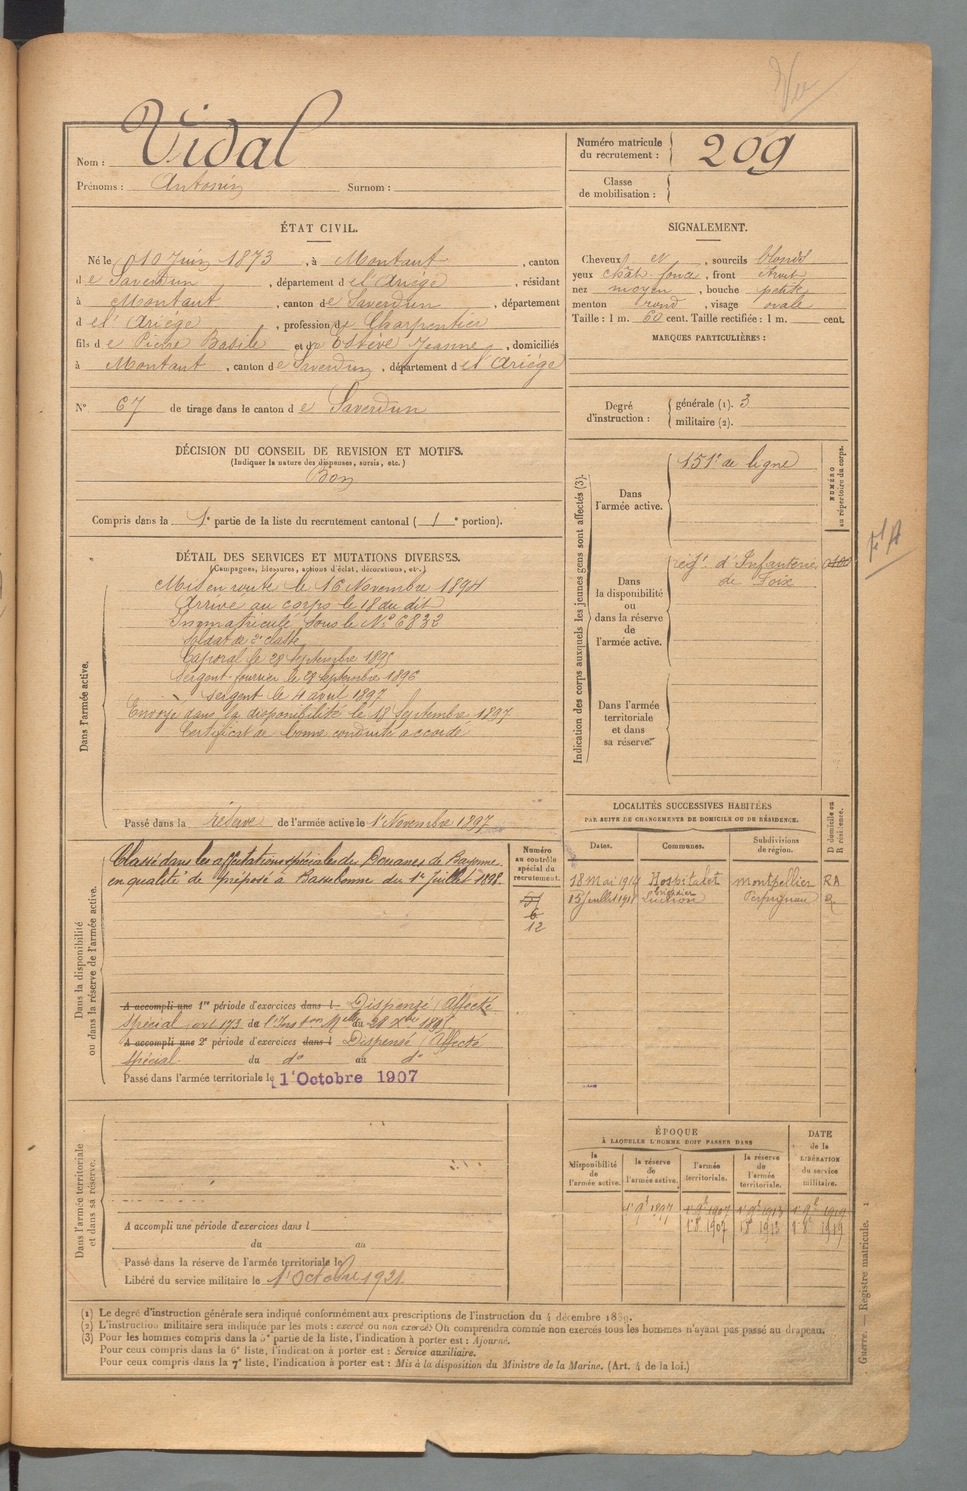 Vu
Nom : Vidal
Prénoms : Antonin Surnom :
Numéro matricule du recrutement : 209
Classe de mobilisation :
ÉTAT CIVIL.
Né le 10 Juin 1873, à Montaut, canton
de Saverdun, département de l'Ariège, résidant
à Montaut, canton de Saverdun, département
de l'Ariège, profession de Charpentier
fils de Pierre Basile et de Estève Jeanne, domiciliés
à Montaut, canton de Saverdun, département de l'Ariège
N° 67 de tirage dans le canton de Saverdun
SIGNALEMENT.
Cheveux et, sourcils blonds
yeux chât. foncé, front étroit
nez moyen, bouche petite
menton rond, visage ovale
Taille : 1 m. 60 cent. Taille rectifiée : 1 m. cent.
MARQUES PARTICULIÈRES :
Degré d'instruction : générale (1). 3
militaire (2).
DÉCISION DU CONSEIL DE REVISION ET MOTIFS.
(Indiquer la nature des dispenses, sursis, etc.)
Bon
Compris dans la 1e partie de la liste du recrutement cantonal ( 1 e portion).
DÉTAIL DES SERVICES ET MUTATIONS DIVERSES.
(Campagnes, blessures, actions d'éclat, décorations, etc.)
Dans l'armée active.
Mis en route le 16 Novembre 1894
Arrivé au corps le 18 du dit
Immatriculé sous le N° 6832
Soldat de 2e classe
Caporal le 28 Septembre 1895
Sergent-fourrier le 28 Septembre 1896
Sergent le 4 avril 1897
Envoyé dans la disponibilité le 18 Septembre 1897
Certificat de bonne conduite accordé
Passé dans la réserve de l'armée active le 1er Novembre 1897
Indication des corps auxquels les jeunes gens sont affectés (3).
NUMÉRO au répertoire du corps.
Dans l'armée active. 151e de ligne
Dans la disponibilité ou dans la réserve de l'armée active. régt. d'Infanterie de Foix
Dans l'armée territoriale et dans sa réserve.
Dans la disponibilité ou dans la réserve de l'armée active.
Classé dans les affectations spéciales des Douanes de Bayonne
en qualité de préposé à Bassebonne du 1er Juillet 1898.
A accompli une 1re période d'exercices dans l Dispensé (Affecté
Spécial, art 173 de l'Inston Mlle du 28 Xbre 1895
A accompli une 2e période d'exercices dans l Dispensé (Affecté
Spécial. du do au do
Passé dans l'armée territoriale le 1er Octobre 1907
Numéro au contrôle spécial du recrutement.
6
12
LOCALITÉS SUCCESSIVES HABITÉES
PAR SUITE DE CHANGEMENTS DE DOMICILE OU DE RÉSIDENCE.
Dates. Communes. Subdivisions de région. D domicile ou R résidence.
18 Mai 1914 Hospitalet Montpellier RA
15 Juillet 1918 Perpignan R
Dans l'armée territoriale et dans sa réserve.
A accompli une période d'exercices dans l
du au
Passé dans la réserve de l'armée territoriale le
Libéré du service militaire le 1er Octobre 1921
ÉPOQUE
À LAQUELLE L'HOMME DOIT PASSER DANS
la disponibilité de l'armée active.
la réserve de l'armée active.
l'armée territoriale.
la réserve de l'armée territoriale.
DATE de la LIBÉRATION du service militaire.
1er 9bre 1897 1er 9bre 1907 1er 9bre 1913 1er 9bre 1919
1er 8 1907 1er 8 1913 1er 8 1919
(1) Le degré d'instruction générale sera indiqué conformément aux prescriptions de l'instruction du 4 décembre 1889.
(2) L'instruction militaire sera indiquée par les mots : exercé ou non exercé. On comprendra comme non exercés tous les hommes n'ayant pas passé au drapeau.
(3) Pour les hommes compris dans la 5e partie de la liste, l'indication à porter est : Ajourné.
Pour ceux compris dans la 6e liste, l'indication à porter est : Service auxiliaire.
Pour ceux compris dans la 7e liste, l'indication à porter est : Mis à la disposition du Ministre de la Marine. (Art. 4 de la loi.)
Guerre. — Registre matricule. 1